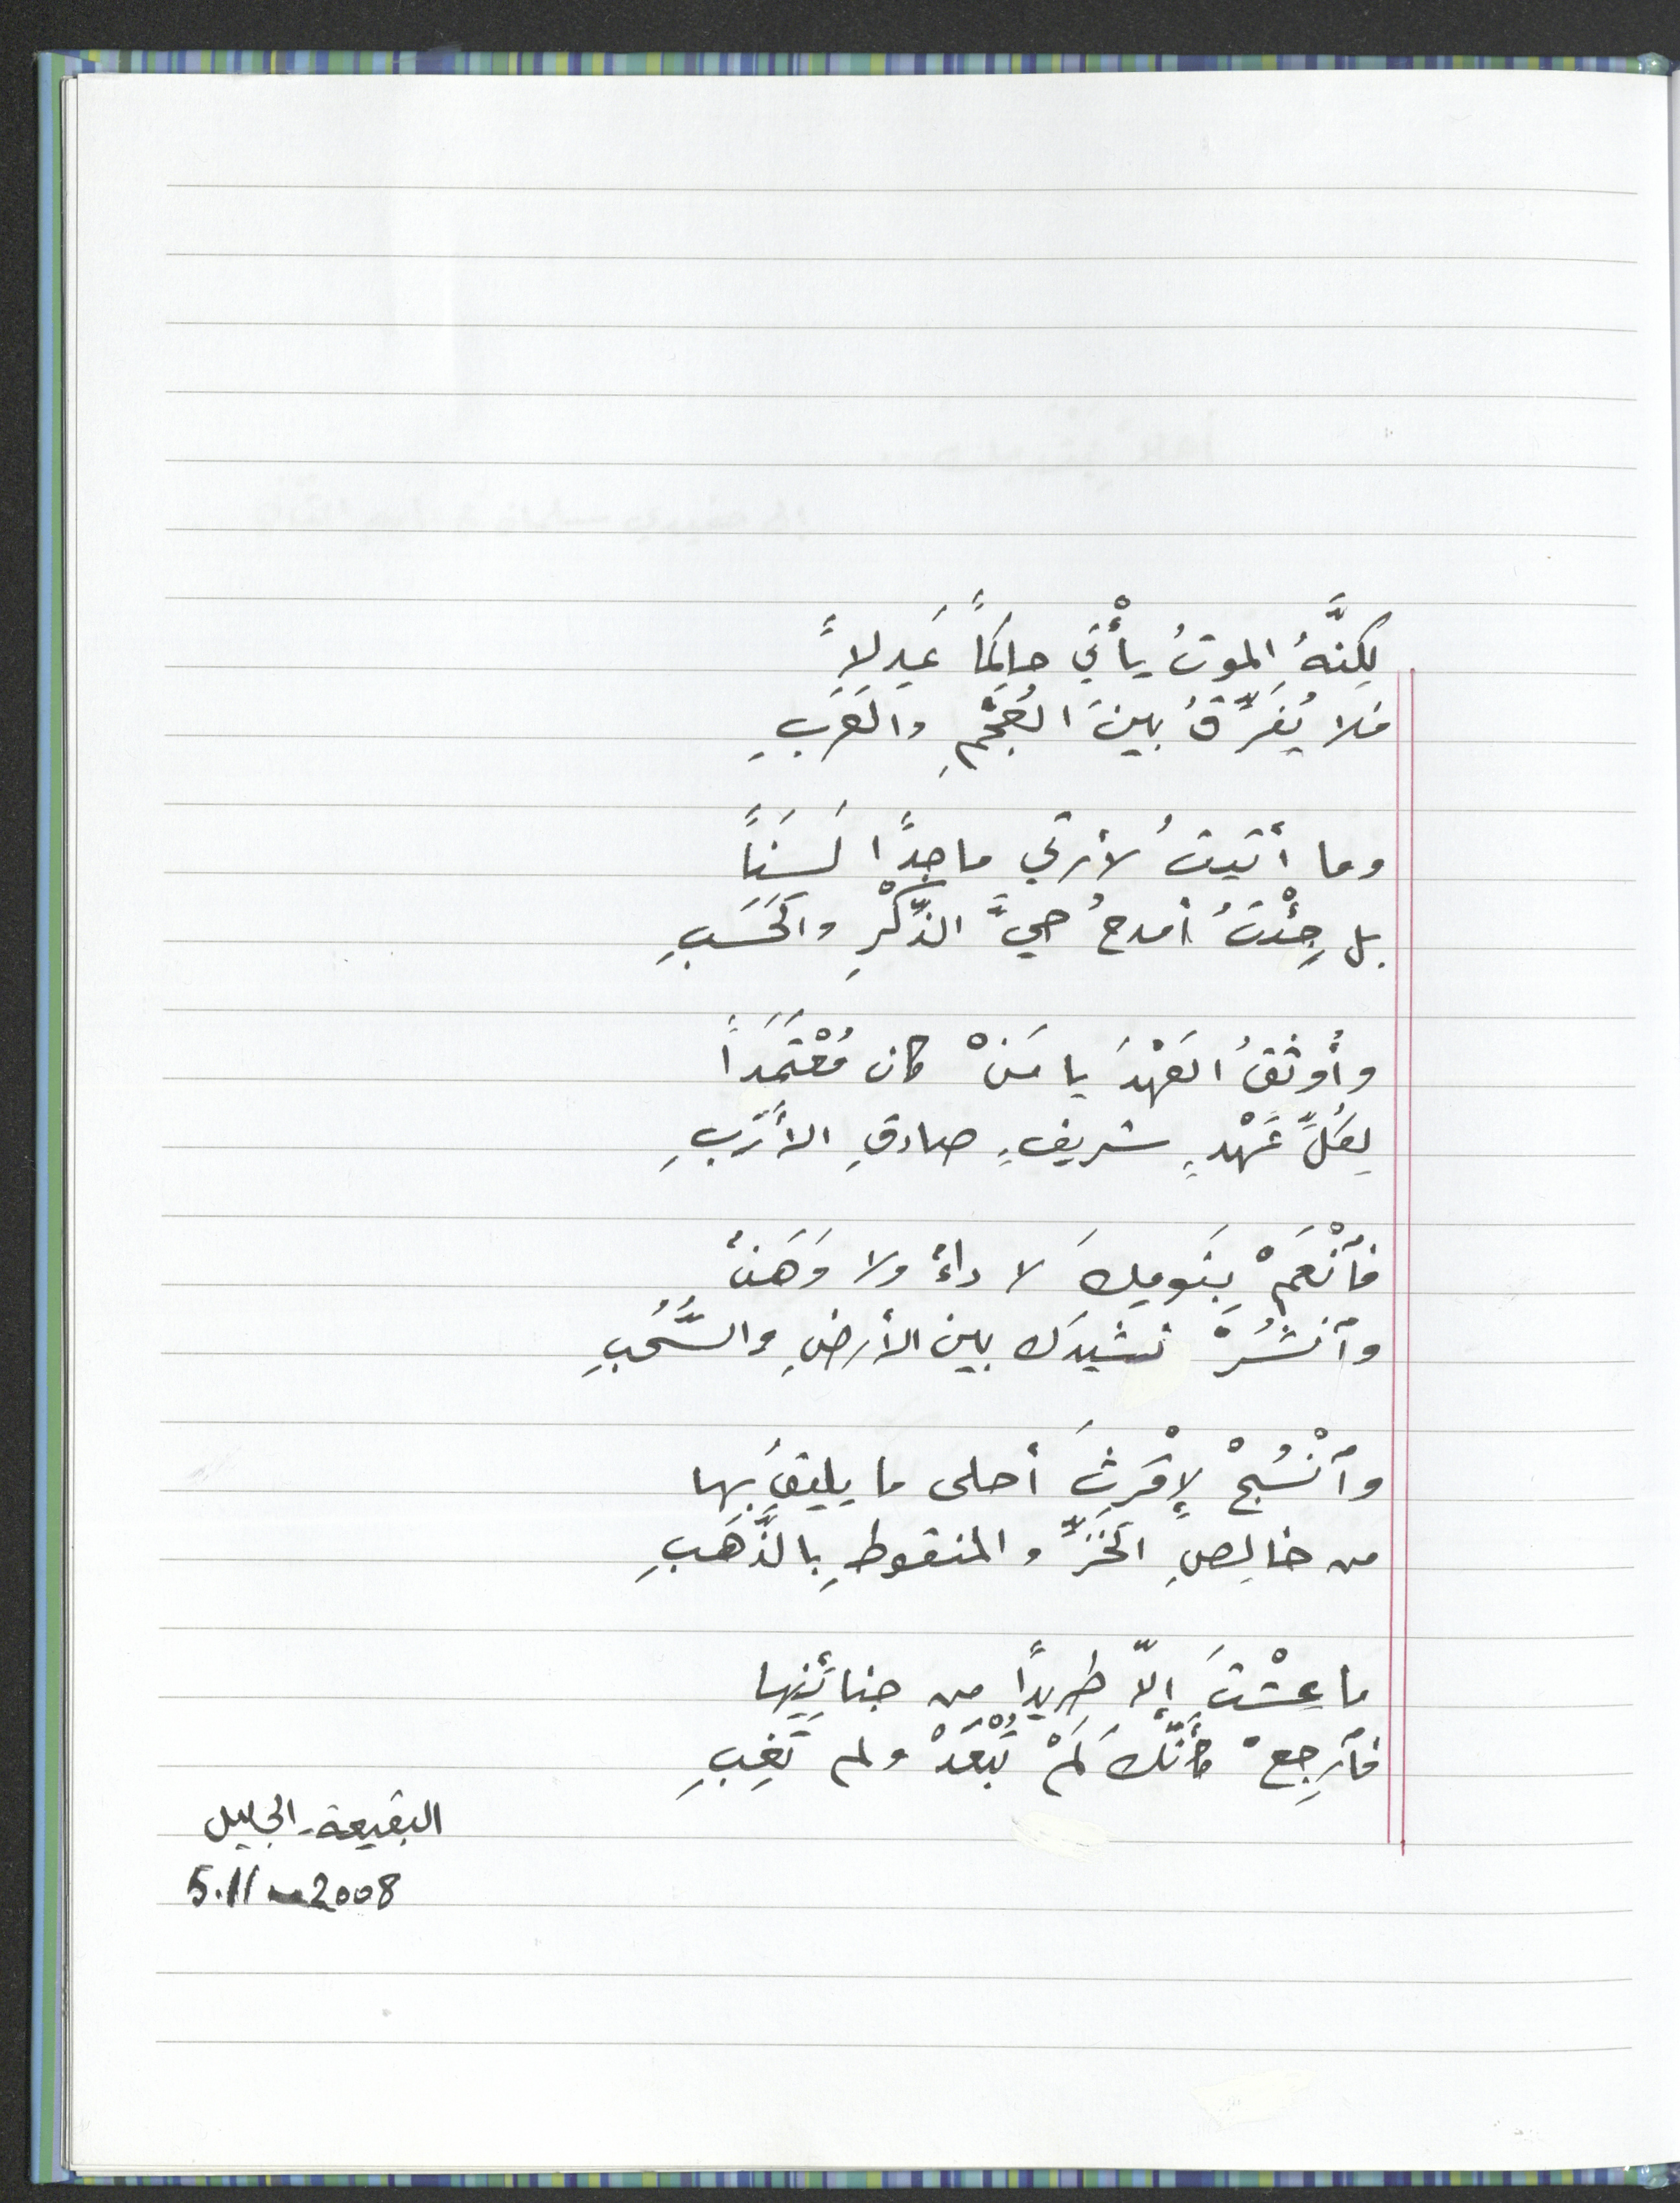 لكِنَّهُ الموتُ يأْتي حاكِمًا عَدِلاً
فلا يُفَرِّقُ بينَ العُجْمِ والعَرَبِ
وما أتيتُ لأرثي ماجِدًا لَسِنَاً
بل جِئْتُ أمدحُ حيَّ الذِّكْرِ والحَسَبِ
وأُوثِقُ العَهْدَ يا مَنْ كان مُعْتَمَداً
لِكُلِّ عَهْدٍ شريفٍ صادقِ الأَرَبِ
فٱنْعَمْ بِنَومِكَ لا داءٌ ولا وَهَنٌ
وٱنشُرْ نشيدَك بين الأرضِ والسُّحُبِ
وٱنْسُجْ لإِقْرِثَ أحلى ما يليقُ بها
من خالِصِ الخَزِّ والمنقوطِ بالذَّهَبِ
ما عِشْتَ إلاّ طريدًا من جنائِنِها
فٱرجِعْ كأنَّكَ لَمْ تَبْعُدْ ولم تَغِبِ
البقيعة - الجليل
5.11 2008